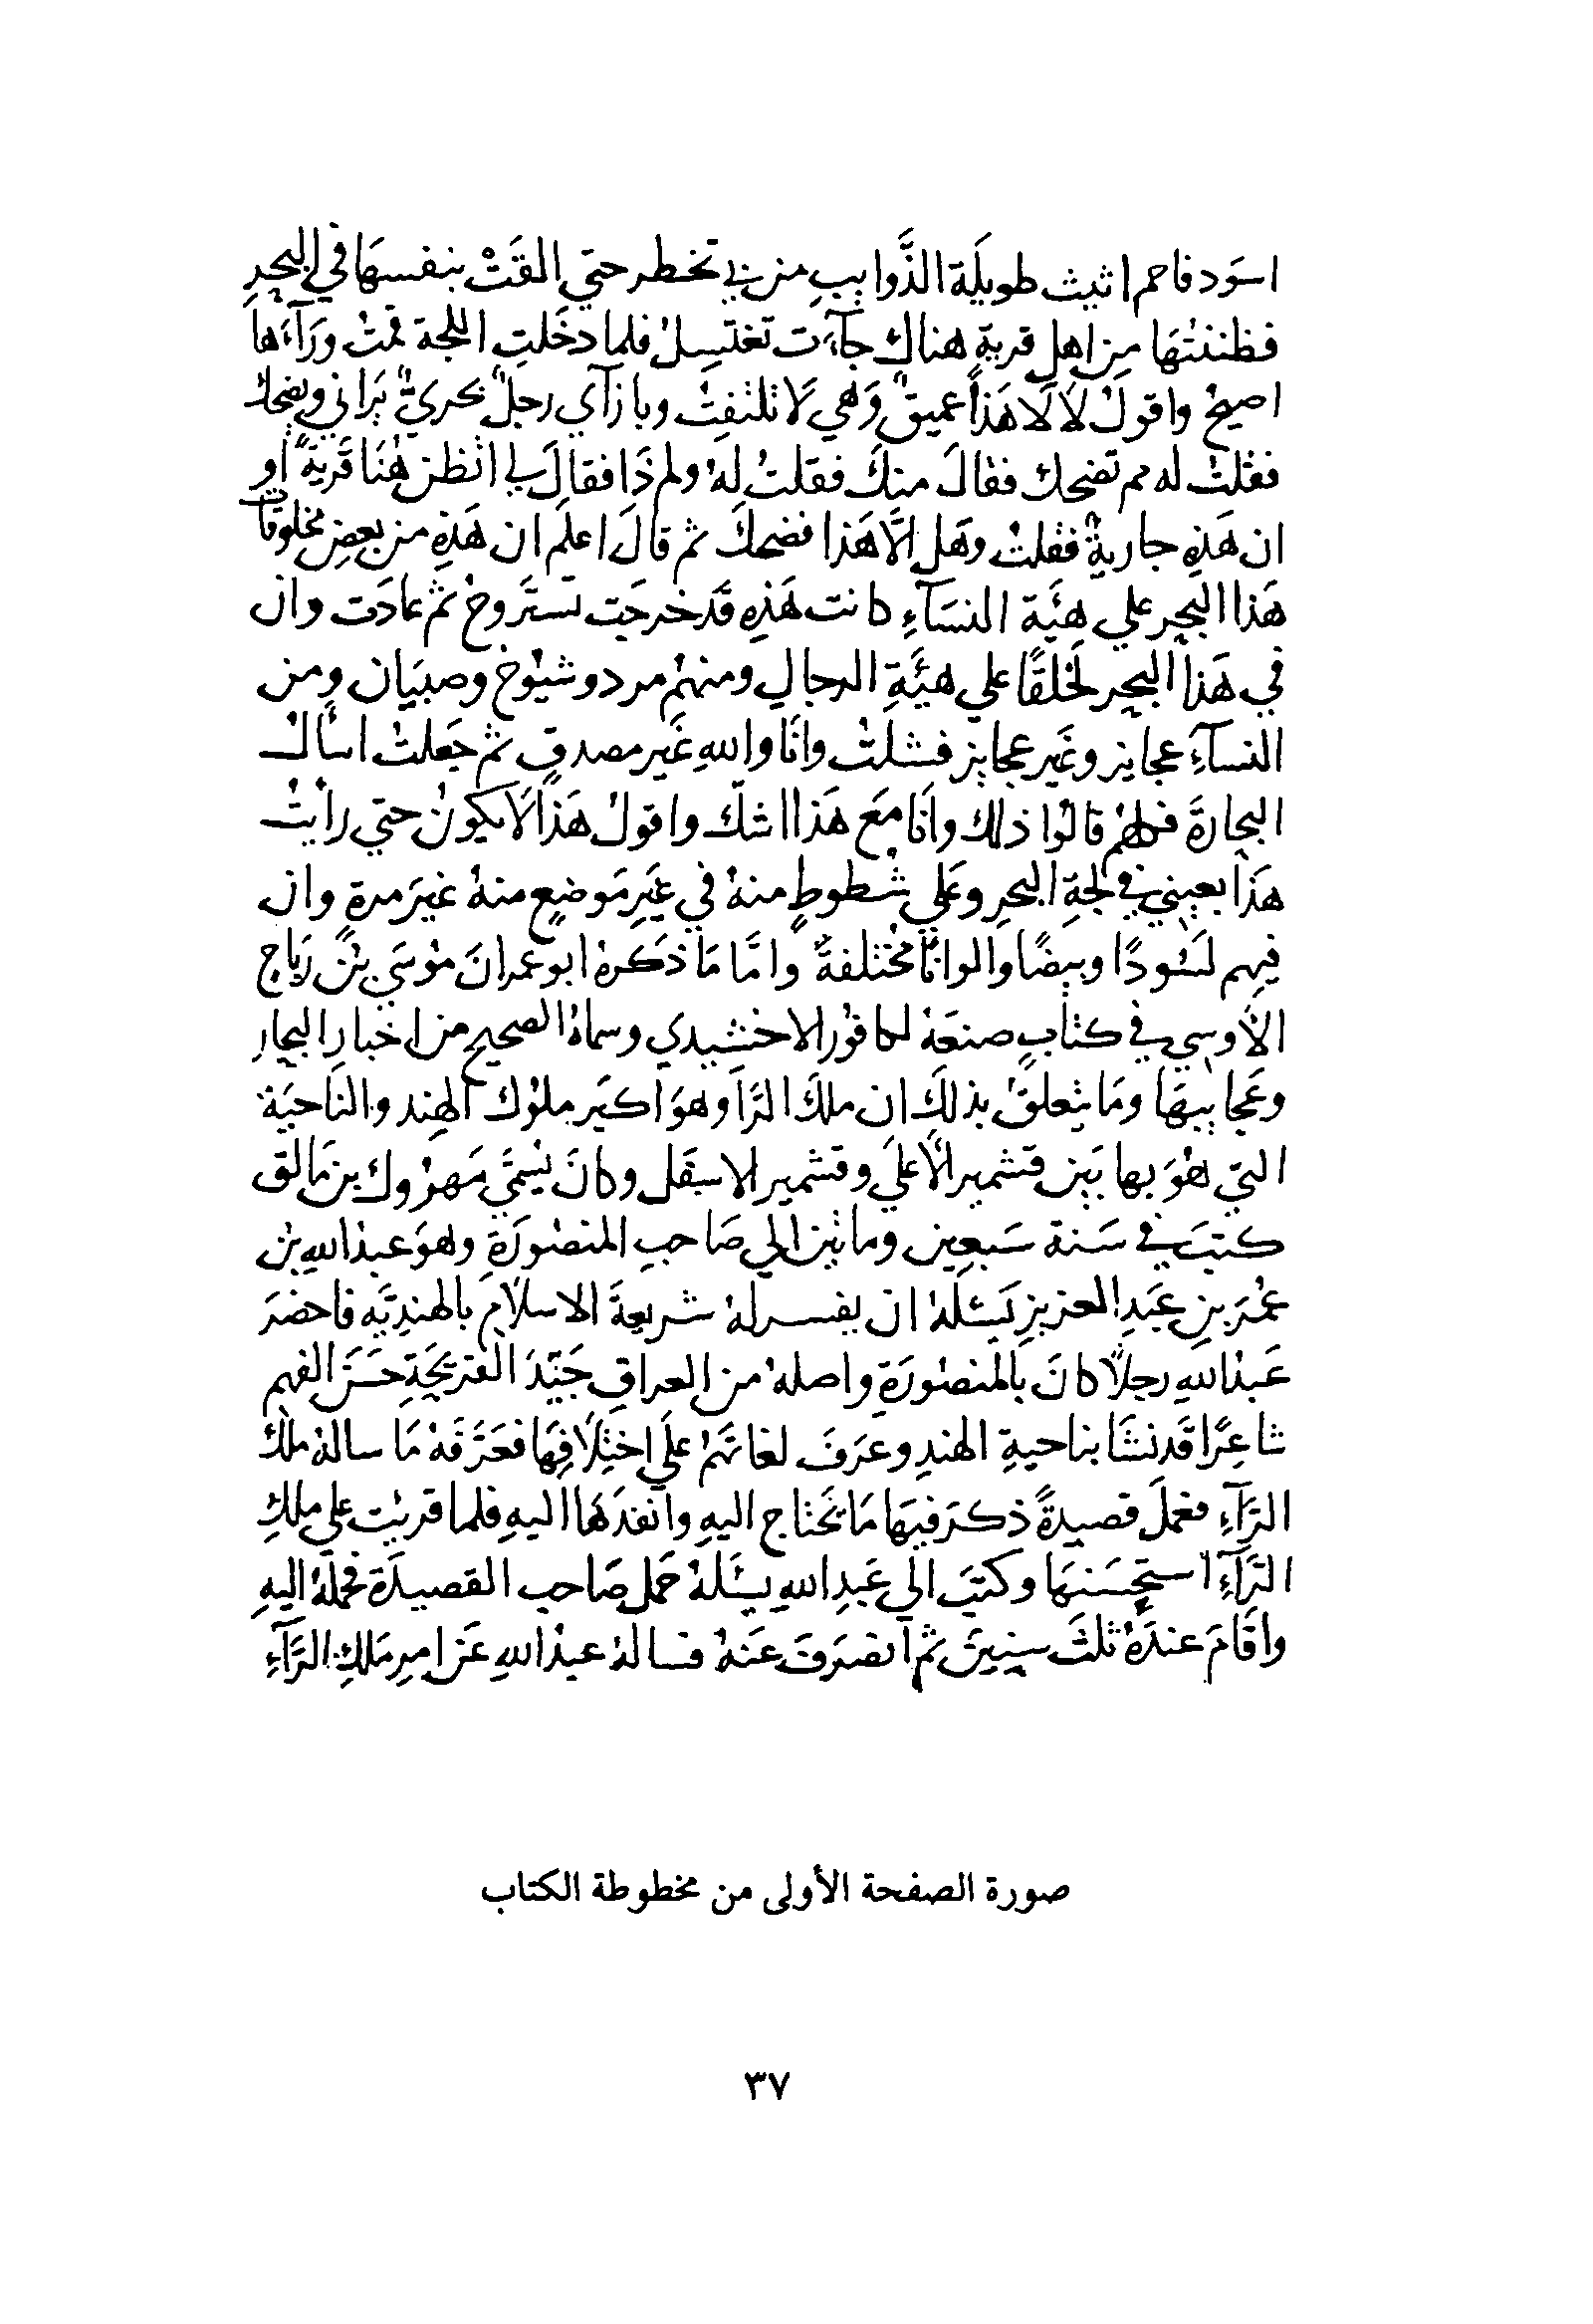 اسَود فاحم اثيث طويلَة الذَّوابيبِ من بني تخطر حتي القَتْ بنفسهَا في البحرِ
فظننتُهَا مِن اهلِ قريةٍ هناك جآءَت تغتسِلُ فلما دخَلتِ اللجة قمتُ ورَآءَها
اصيحُ واقولُ لاَ لاَ هَذا عميقٌ وَهي لاَ تلتفِتُ وبازآي رجلٌ بحريٌّ يَراني ويضحك
فقلتُ له مم تضحك فقالَ منكَ فقلتُ لهُ ولم ذَا فقالَ لي اتظن هُنَا قَريَةً او
ان هَذهِ جاريةٌ فقلتُ وهَل الاَّ هَذا فضحكَ ثم قالَ اعلَم ان هَذِهِ من بعضِ مخلوقات
هَذا البحر علي هيئَة النسَآءِ كانت هَذِهِ قَد خرجَت تستَروحُ ثم عادَت وان
في هَذا البحر لَخلقًا علي هيئَةِ الرجالِ ومنهُم مرد وشيُوخ وصبيَان ومن
النسآءِ عجايز وغَير عجايز فشلتُ وانَا واللهِ غَير مصدقٍ ثم جَعلتُ اسأل
البحارةَ فكلهُم قالُوا ذلك وانَا مَع هَذا اشك واقولُ هَذا لاَ يكونُ حتي رأيتُ
هَذا بعيني في لجةِ البحرِ وعَلي شُطوطٍ منهُ في غَيرِ مَوضعٍ منهُ غيرَ مرةٍ وان
فيهم لسُودًا وبيضًا والوانًا مختلفةً وامَّا مَا ذَكرهُ ابو عمرانَ موُسَي بنُ رَباح
الأوسِي في كتابٍ صنعَهُ لكافوُر الاخشيدي وسماهُ الصحيح من اخبارِ البحار
وعَجايبهَا ومَا يتعلقُ بذلكَ ان ملكَ الرَّا وهوَ اكبَر ملوُك الهند والناحيَة
التي هُوَ بها بَين قشمير الأعلَي وقشمير الاسفَل وكانَ يُسمَّي مَهرُوك بن مَالق
كتبَ في سَنة سَبعين وماتين الي صَاحب المنصُورَةِ وهوَ عبدُ اللهِ بن
عُمرَ بنِ عَبدِ العزيزِ يَسئلهُ ان يفسر لهُ شريعةَ الاسلام بالهنديَّه فاحضرَ
عَبدُ اللهِ رجلاً كانَ بالمنصُورَةِ واصلهُ من العراقِ جَيّدَ القريحَةِ حسَنَ الفهم
شاعِرًا قَد نشَا بناحيةِ الهندِ وعرَفَ لغاتَهُم علَي اختِلاَفِهَا فعَرَّفَهُ مَا سالهُ ملك
الرَّآءِ فعَملَ قصيدةً ذكرَ فيهَا مَا يحَتاج اليهِ وانفذَهَا اليهِ فلما قريت علي ملكِ
الرَّآءِ استحسَنهَا وكتبَ الَي عَبدِ اللهِ يسئَلهُ حَمل صَاحب القصيدَة فحملَهُ اليهِ
واقَامَ عندَهُ ثلثَ سنينَ ثم انصرَفَ عَنهُ فسالهُ عبدُ اللهِ عَن امرِ مَلكِ الرَّآءِ
صورة الصفحة الأولى من مخطوطة الكتاب
٣٧